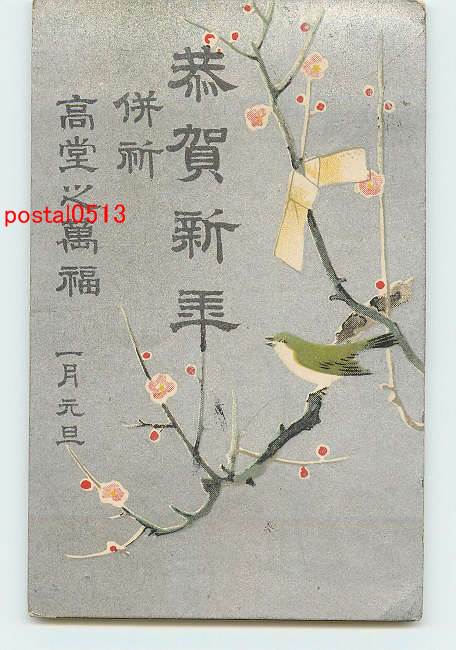 恭賀新年
併祈
高堂之萬福
一月元旦
postal0513